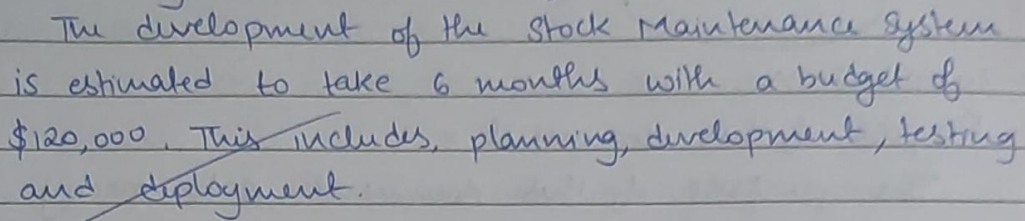 The development of the Stock Maintenance System
is estimated to take 6 months with a budget of
$120,000. This includes, planning, development, testing
and deployment.